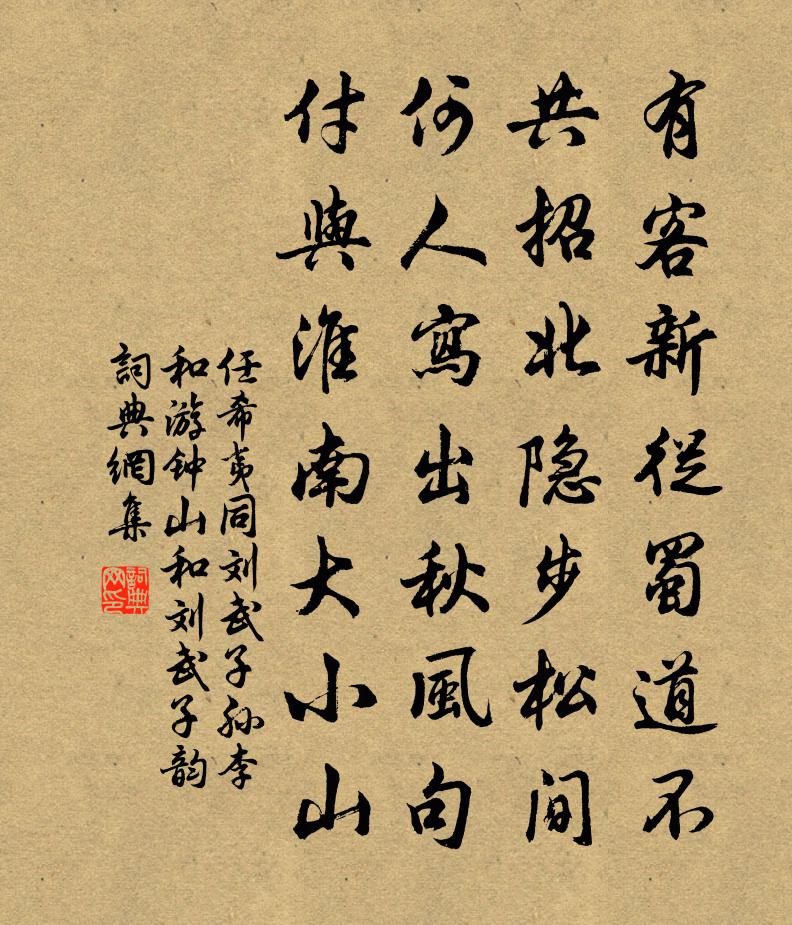 有客新從蜀道不
共招北隐步松间
何人寫出秋風句
付與淮南大小山
任希夷同刘武子孙李
和游钟山和刘武子韵
詞典網集
詞典
网印